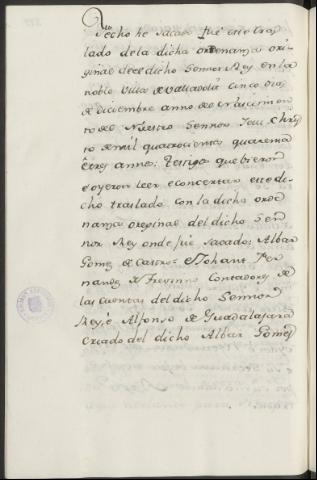 Fecho he Sacado fué este tras
lado de la dicha ordenanza ori
ginal de el dicho Sennor Rey en la
noble Villa de Valladolid cinco dias
de diciembre anno del nascimien
to de Nuestro Sennor Jesu Chris
to de mil quatrocientos quarenta
é tres annos: Testigos que bieron
é oyeron leer é concertar este di
cho traslado con la dicha orde
nanza oreginal del dicho Sen
nor Rey onde fué sacado: Albar
Gomez de Castro: é Johant Fer
nandez de Contadores de
las cuentas del dicho Sennor
Rey, é Alfonso de Guadalajara
criado del dicho Albar Gomez